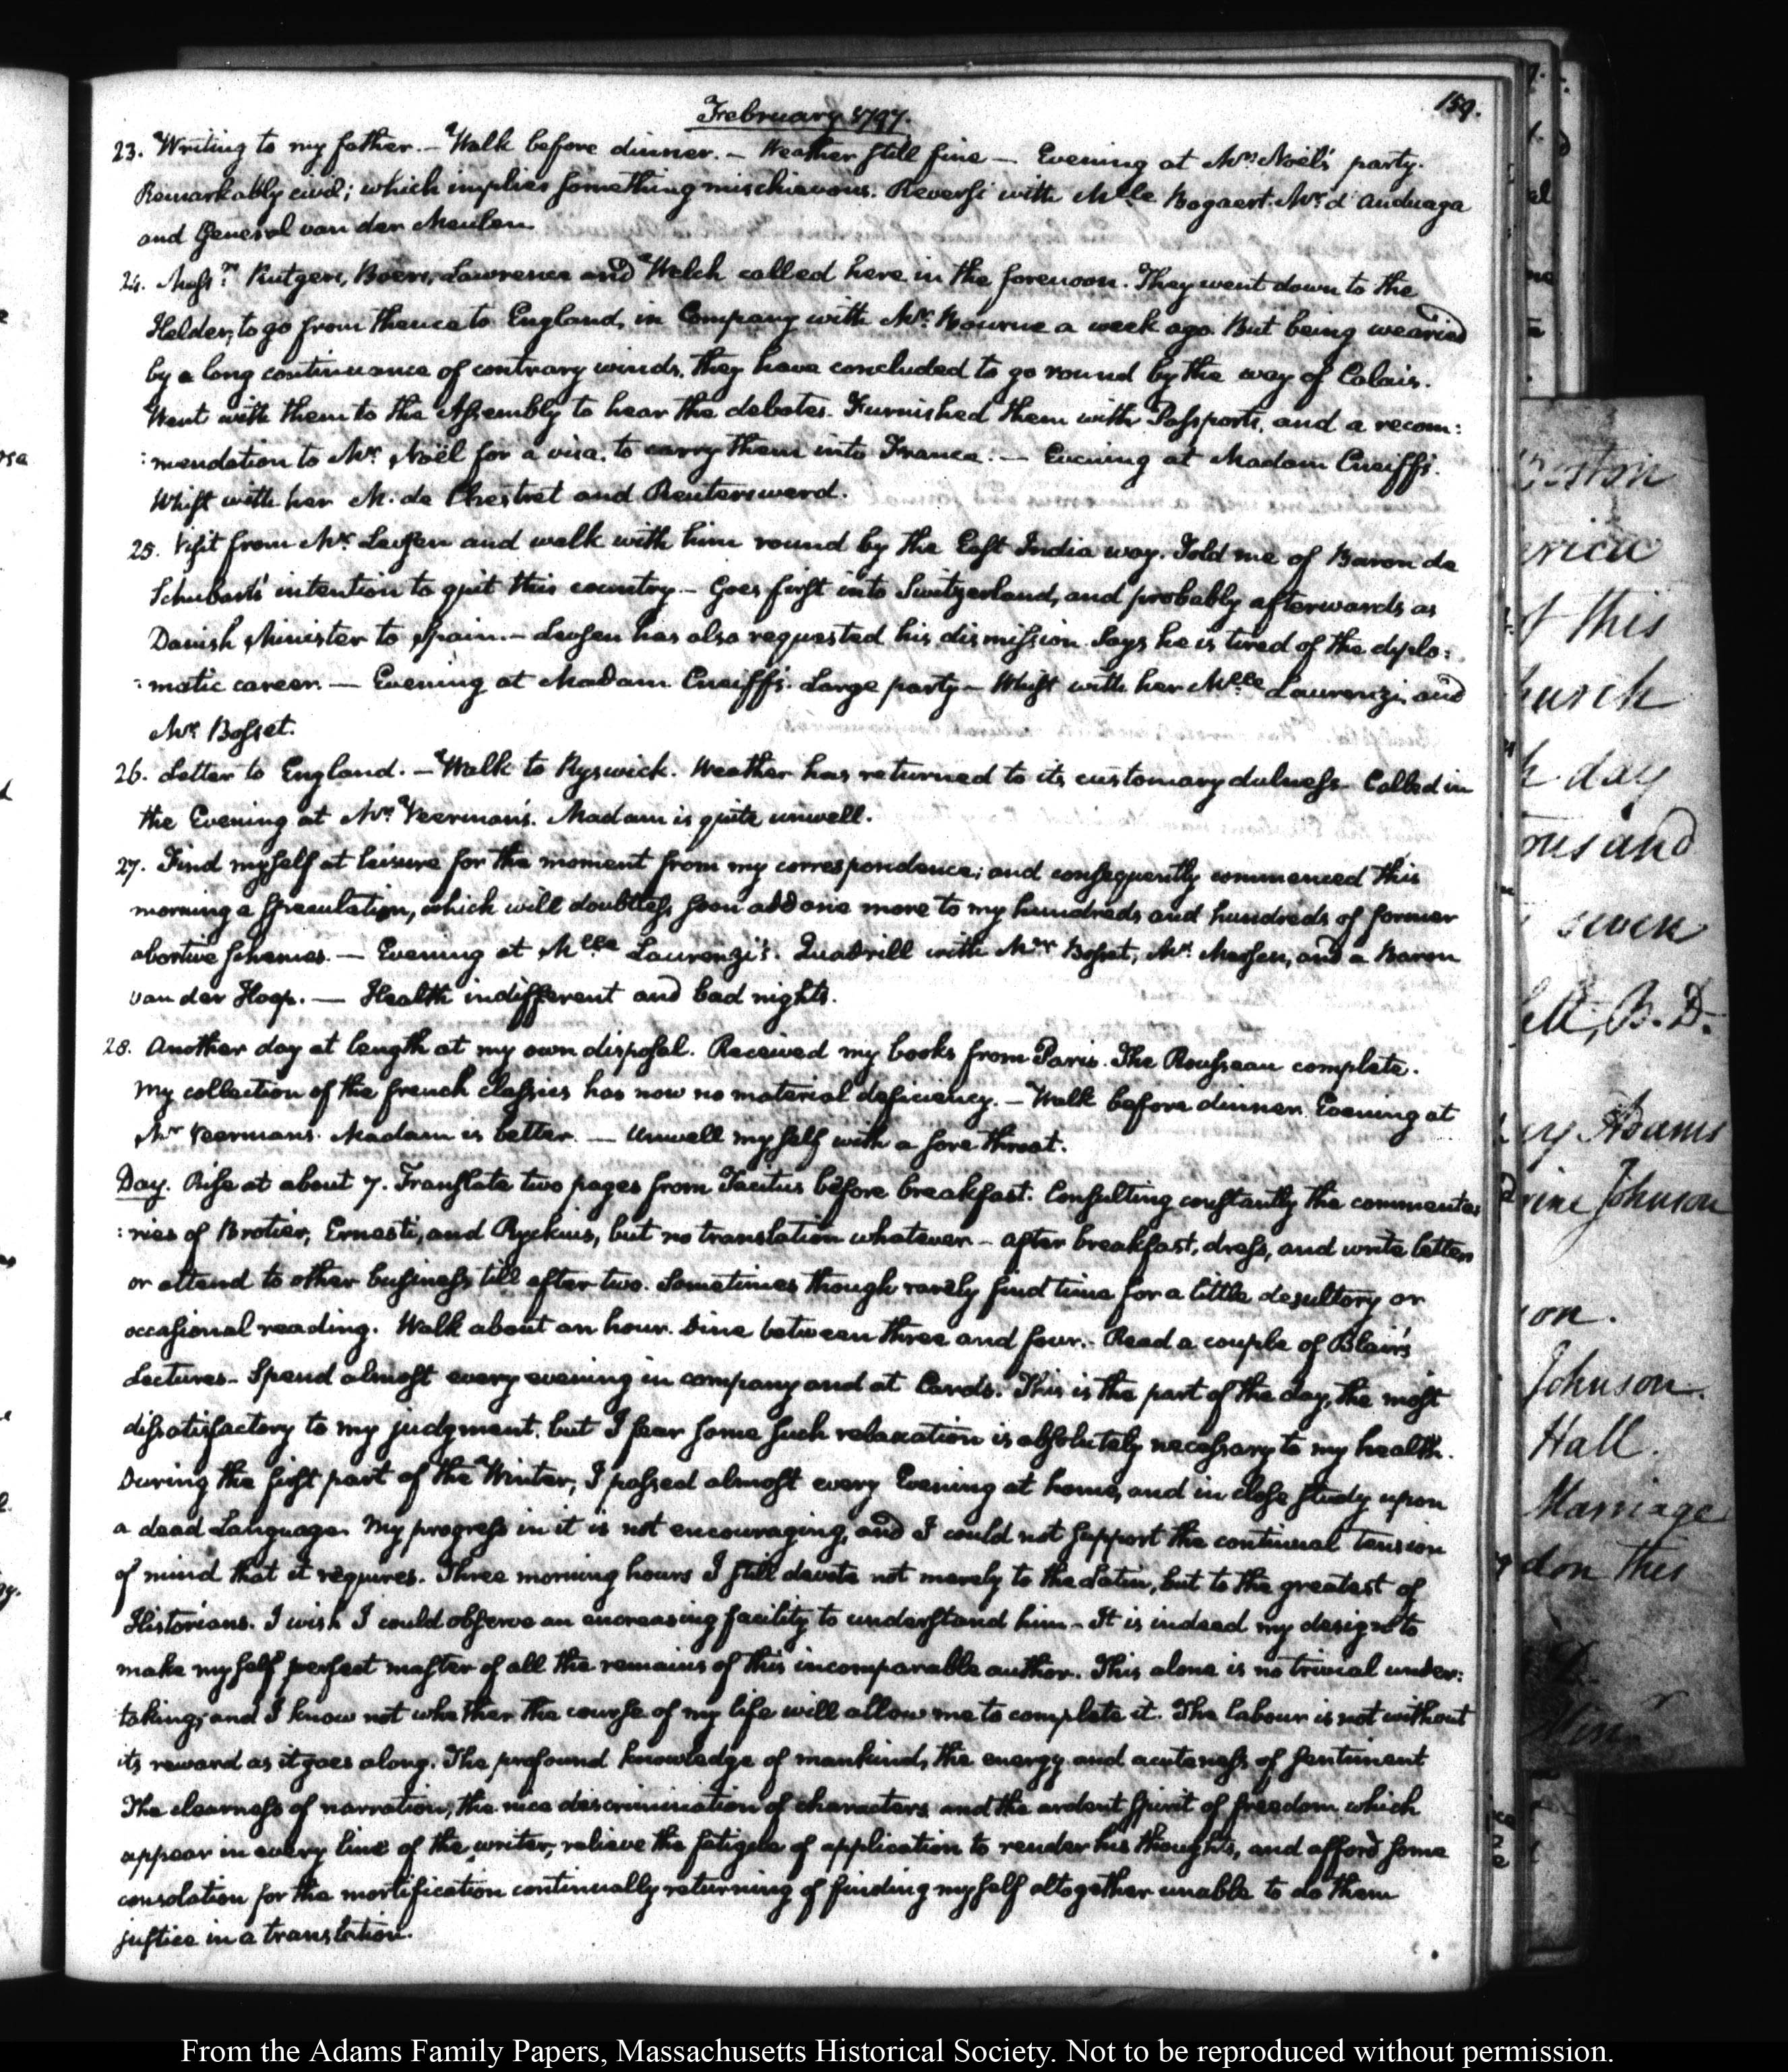 159.
February 1797.
23. Writing to my father. – Walk before dinner. – Weather still fine – Evening at Mr. Noël's party.
Remarkably civil; which implies something mischievous. Reversi with Mlle. Bogaert. Mr. d'Anduaga
and General van der Meulen
24. Messrs. Rutgers, Boers, Lawrence and Welch called here in the forenoon. They went down to the
Helder, to go from thence to England, in Company with Mr. Bourne a week ago. But being wearied
by a long continuance of contrary winds, they have concluded to go round by the way of Calais.
Went with them to the Assembly to hear the debates. Furnished them with Passports, and a recom:
:mendation to Mr. Noël for a visa, to carry them into France. — Evening at Madam Creiffs.
Whist with her M. de Chestret and Reutersward.
25. Visit from Mr. Levsen and walk with him round by the East India way. Told me of Baron de
Schubart's intention to quit this country – Goes first into Switzerland, and probably afterwards as
Danish Minister to Spain. – Levsen has also requested his dismission. Says he is tired of the diplo:
:matic career. — Evening at Madam Creiffs. Large party – Whist with her Mlle Laurenzi and
Mr. Bosset.
26. Letter to England. – Walk to Ryswick. Weather has returned to its customary dulness. Called in
the Evening at Mr. Veerman's. Madam is quite unwell.
27. Find myself at leisure for the moment from my correspondence; and consequently commenced this
morning a speculation, which will doubtless soon add one more to my hundreds and hundreds of former
abortive schemes. — Evening at Mlle Laurenzi's. Quadrill with Mr. Bosset, Mr. and a Baron
van der Hoop. — Health indifferent and bad nights.
28. Another day at length at my own disposal. Received my books from Paris. The Rousseau complete.
My collection of the french classics has now no material deficiency. – Walk before dinner. Evening at
Mr Veermans. Madam is better. — Unwell myself with a sore throat.
Day. Rise at about 7. Translate two pages from Tacitus before breakfast. Consulting constantly the commenta:
:ries of Brotier, Ernesti, and Ryckius, but no translation whatever – after breakfast, dress, and write letters
or attend to other business till after two. Sometimes though rarely find time for a little desultory or
occasional reading. Walk about an hour. Dine between three and four. – Read a couple of Blair's
Lectures – Spend almost every evening in company and at Cards. This is the part of the day, the most
dissatisfactory to my judgment, but I fear some such relaxation is absolutely necessary to my health.
During the first part of the Winter, I passed almost every Evening at home, and in close study upon
a dead Language. My progress in it is not encouraging, and I could not support the continual tension
of mind that it requires. Three morning hours I still devote not merely to the Latin, but to the greatest of
Historians. I wish I could observe an encreasing facility to understand him – It is indeed my design to
make myself perfect master of all the remains of this incomparable author. This alone is no trivial under:
taking; and I know not whether the course of my life will allow me to complete it. The labour is not without
its reward as it goes along. The profound knowledge of mankind, the energy and acuteness of sentiment
The clearness of narration, the nice descrimination of characters and the ardent spirit of freedom which
appear in every line of the writer, relieve the fatigue of application to render his thoughts, and afford some
consolation for the mortification continually returning of finding myself altogether unable to do them
justice in a translation.
this
day
Adams
Johnson
Johnson.
Hall.
Marriage
this
From the Adams Family Papers, Massachusetts Historical Society. Not to be reproduced without permission.